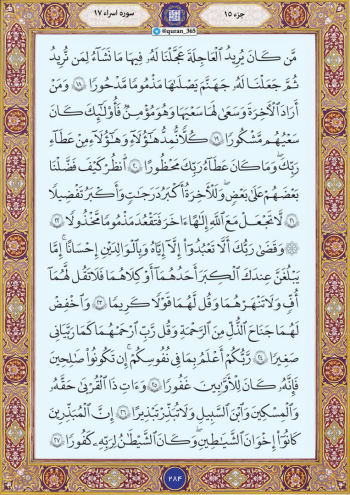 جزء ۱۵
@quran_365
سوره اسراء ۱۷
مَّن كَانَ يُرِيدُ ٱلْعَاجِلَةَ عَجَّلْنَا لَهُۥ فِيهَا مَا نَشَآءُ لِمَن نُّرِيدُ
ثُمَّ جَعَلْنَا لَهُۥ جَهَنَّمَ يَصْلَىٰهَا مَذْمُومًا مَّدْحُورًا ۝١٨ وَمَنْ
أَرَادَ ٱلْءَاخِرَةَ وَسَعَىٰ لَهَا سَعْيَهَا وَهُوَ مُؤْمِنٌ فَأُو۟لَٰٓئِكَ كَانَ
سَعْيُهُم مَّشْكُورًا ۝١٩ كُلًّا نُّمِدُّ هَٰٓؤُلَآءِ وَهَٰٓؤُلَآءِ مِنْ عَطَآءِ
رَبِّكَ ۚ وَمَا كَانَ عَطَآءُ رَبِّكَ مَحْظُورًا ۝٢٠ ٱنظُرْ كَيْفَ فَضَّلْنَا
بَعْضَهُمْ عَلَىٰ بَعْضٍ ۚ وَلَلْءَاخِرَةُ أَكْبَرُ دَرَجَٰتٍ وَأَكْبَرُ تَفْضِيلًا
۝٢١ لَّا تَجْعَلْ مَعَ ٱللَّهِ إِلَٰهًا ءَاخَرَ فَتَقْعُدَ مَذْمُومًا مَّخْذُولًا ۝٢٢
۞ وَقَضَىٰ رَبُّكَ أَلَّا تَعْبُدُوٓا۟ إِلَّآ إِيَّاهُ وَبِٱلْوَٰلِدَيْنِ إِحْسَٰنًا ۚ إِمَّا
يَبْلُغَنَّ عِندَكَ ٱلْكِبَرَ أَحَدُهُمَآ أَوْ كِلَاهُمَا فَلَا تَقُل لَّهُمَآ
أُفٍّ وَلَا تَنْهَرْهُمَا وَقُل لَّهُمَا قَوْلًا كَرِيمًا ۝٢٣ وَٱخْفِضْ
لَهُمَا جَنَاحَ ٱلذُّلِّ مِنَ ٱلرَّحْمَةِ وَقُل رَّبِّ ٱرْحَمْهُمَا كَمَا رَبَّيَانِى
صَغِيرًا ۝٢٤ رَّبُّكُمْ أَعْلَمُ بِمَا فِى نُفُوسِكُمْ ۚ إِن تَكُونُوا۟ صَٰلِحِينَ
فَإِنَّهُۥ كَانَ لِلْأَوَّٰبِينَ غَفُورًا ۝٢٥ وَءَاتِ ذَا ٱلْقُرْبَىٰ حَقَّهُۥ
وَٱلْمِسْكِينَ وَٱبْنَ ٱلسَّبِيلِ وَلَا تُبَذِّرْ تَبْذِيرًا ۝٢٦ إِنَّ ٱلْمُبَذِّرِينَ
كَانُوٓا۟ إِخْوَٰنَ ٱلشَّيَٰطِينِ ۖ وَكَانَ ٱلشَّيْطَٰنُ لِرَبِّهِۦ كَفُورًا ۝٢٧
۲۸۴